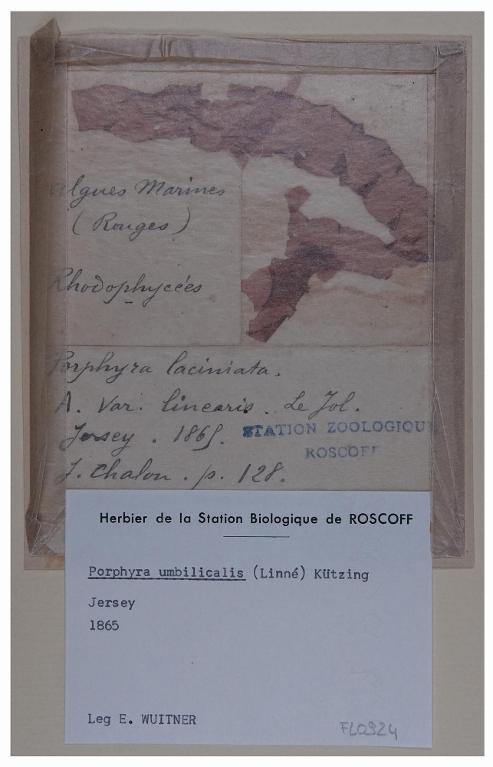 Algues Marines
(Rouges)
Rhodophycées
Porphyra laciniata.
A. Var. linearis. Le Jol.
Jersey. 1865.
J. Chalon. p. 128.
STATION ZOOLOGIQUE
ROSCOFF
Herbier de la Station Biologique de ROSCOFF
Porphyra umbilicalis (Linné) Kützing
Jersey
1865
Leg E. WUITNER
FL0924